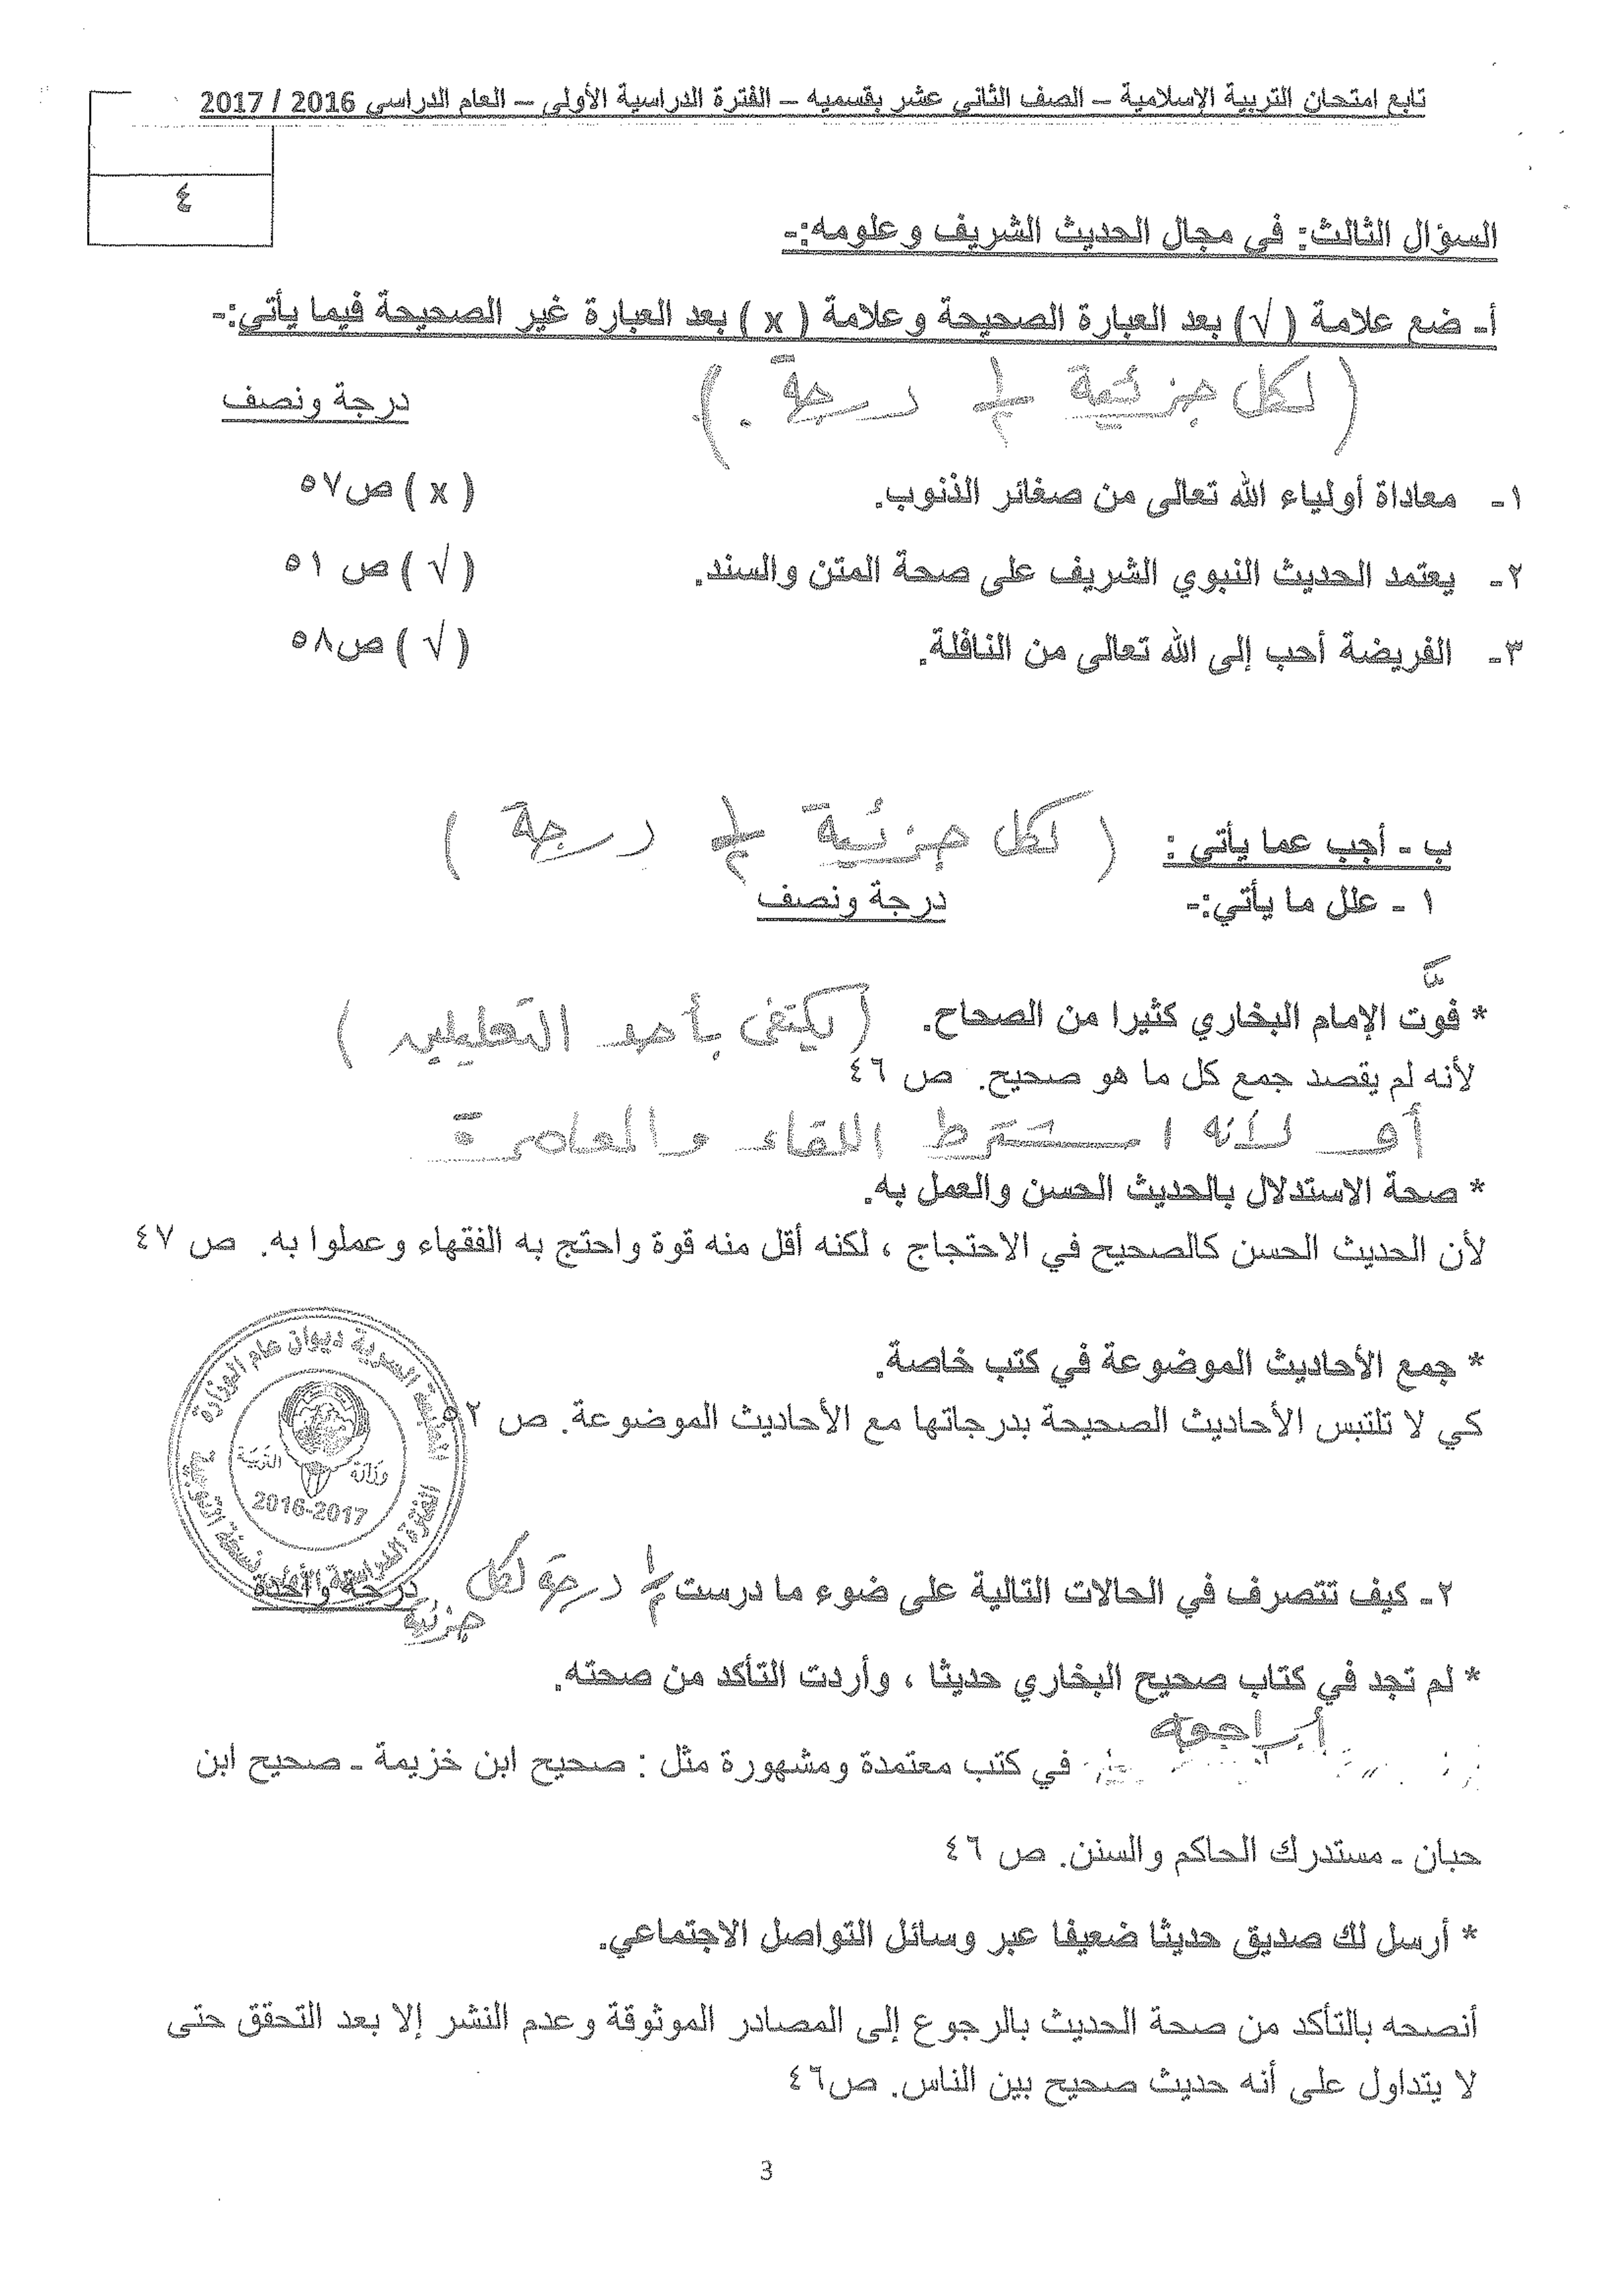 تابع امتحان التربية الإسلامية – الصف الثاني عشر بقسميه – الفترة الدراسية الأولى – العام الدراسي 2016 / 2017
٤
السؤال الثالث: في مجال الحديث الشريف وعلومه:-
أ- ضع علامة ( √ ) بعد العبارة الصحيحة وعلامة ( x ) بعد العبارة غير الصحيحة فيما يأتي:-
( لكل جزئية ½ درجة . )
درجة ونصف
١- معاداة أولياء الله تعالى من صغائر الذنوب. ( x ) ص٥٧
٢- يعتمد الحديث النبوي الشريف على صحة المتن والسند. ( √ ) ص ٥١
٣- الفريضة أحب إلى الله تعالى من النافلة. ( √ ) ص٥٨
ب - أجب عما يأتي : ( لكل جزئية ½ درجة )
١ - علل ما يأتي:- درجة ونصف
* فوّت الإمام البخاري كثيرا من الصحاح. ( يكتفى بأحد التعليلين )
لأنه لم يقصد جمع كل ما هو صحيح. ص ٤٦
أو لأنه اشترط اللقاء والمعاصرة
* صحة الاستدلال بالحديث الحسن والعمل به.
لأن الحديث الحسن كالصحيح في الاحتجاج ، لكنه أقل منه قوة واحتج به الفقهاء وعملوا به. ص ٤٧
* جمع الأحاديث الموضوعة في كتب خاصة.
كي لا تلتبس الأحاديث الصحيحة بدرجاتها مع الأحاديث الموضوعة. ص ٥٢
السرية ديوان عام الوزارة
وزارة التربية
2016-2017
الفترة الدراسية الأولى
٢- كيف تتصرف في الحالات التالية على ضوء ما درست ½ درجة لكل جزئية درجة واحدة
* لم تجد في كتاب صحيح البخاري حديثا ، وأردت التأكد من صحته.
أراجعه
في كتب معتمدة ومشهورة مثل : صحيح ابن خزيمة - صحيح ابن
حبان - مستدرك الحاكم والسنن. ص ٤٦
* أرسل لك صديق حديثا ضعيفا عبر وسائل التواصل الاجتماعي.
أنصحه بالتأكد من صحة الحديث بالرجوع إلى المصادر الموثوقة وعدم النشر إلا بعد التحقق حتى
لا يتداول على أنه حديث صحيح بين الناس. ص٤٦
3